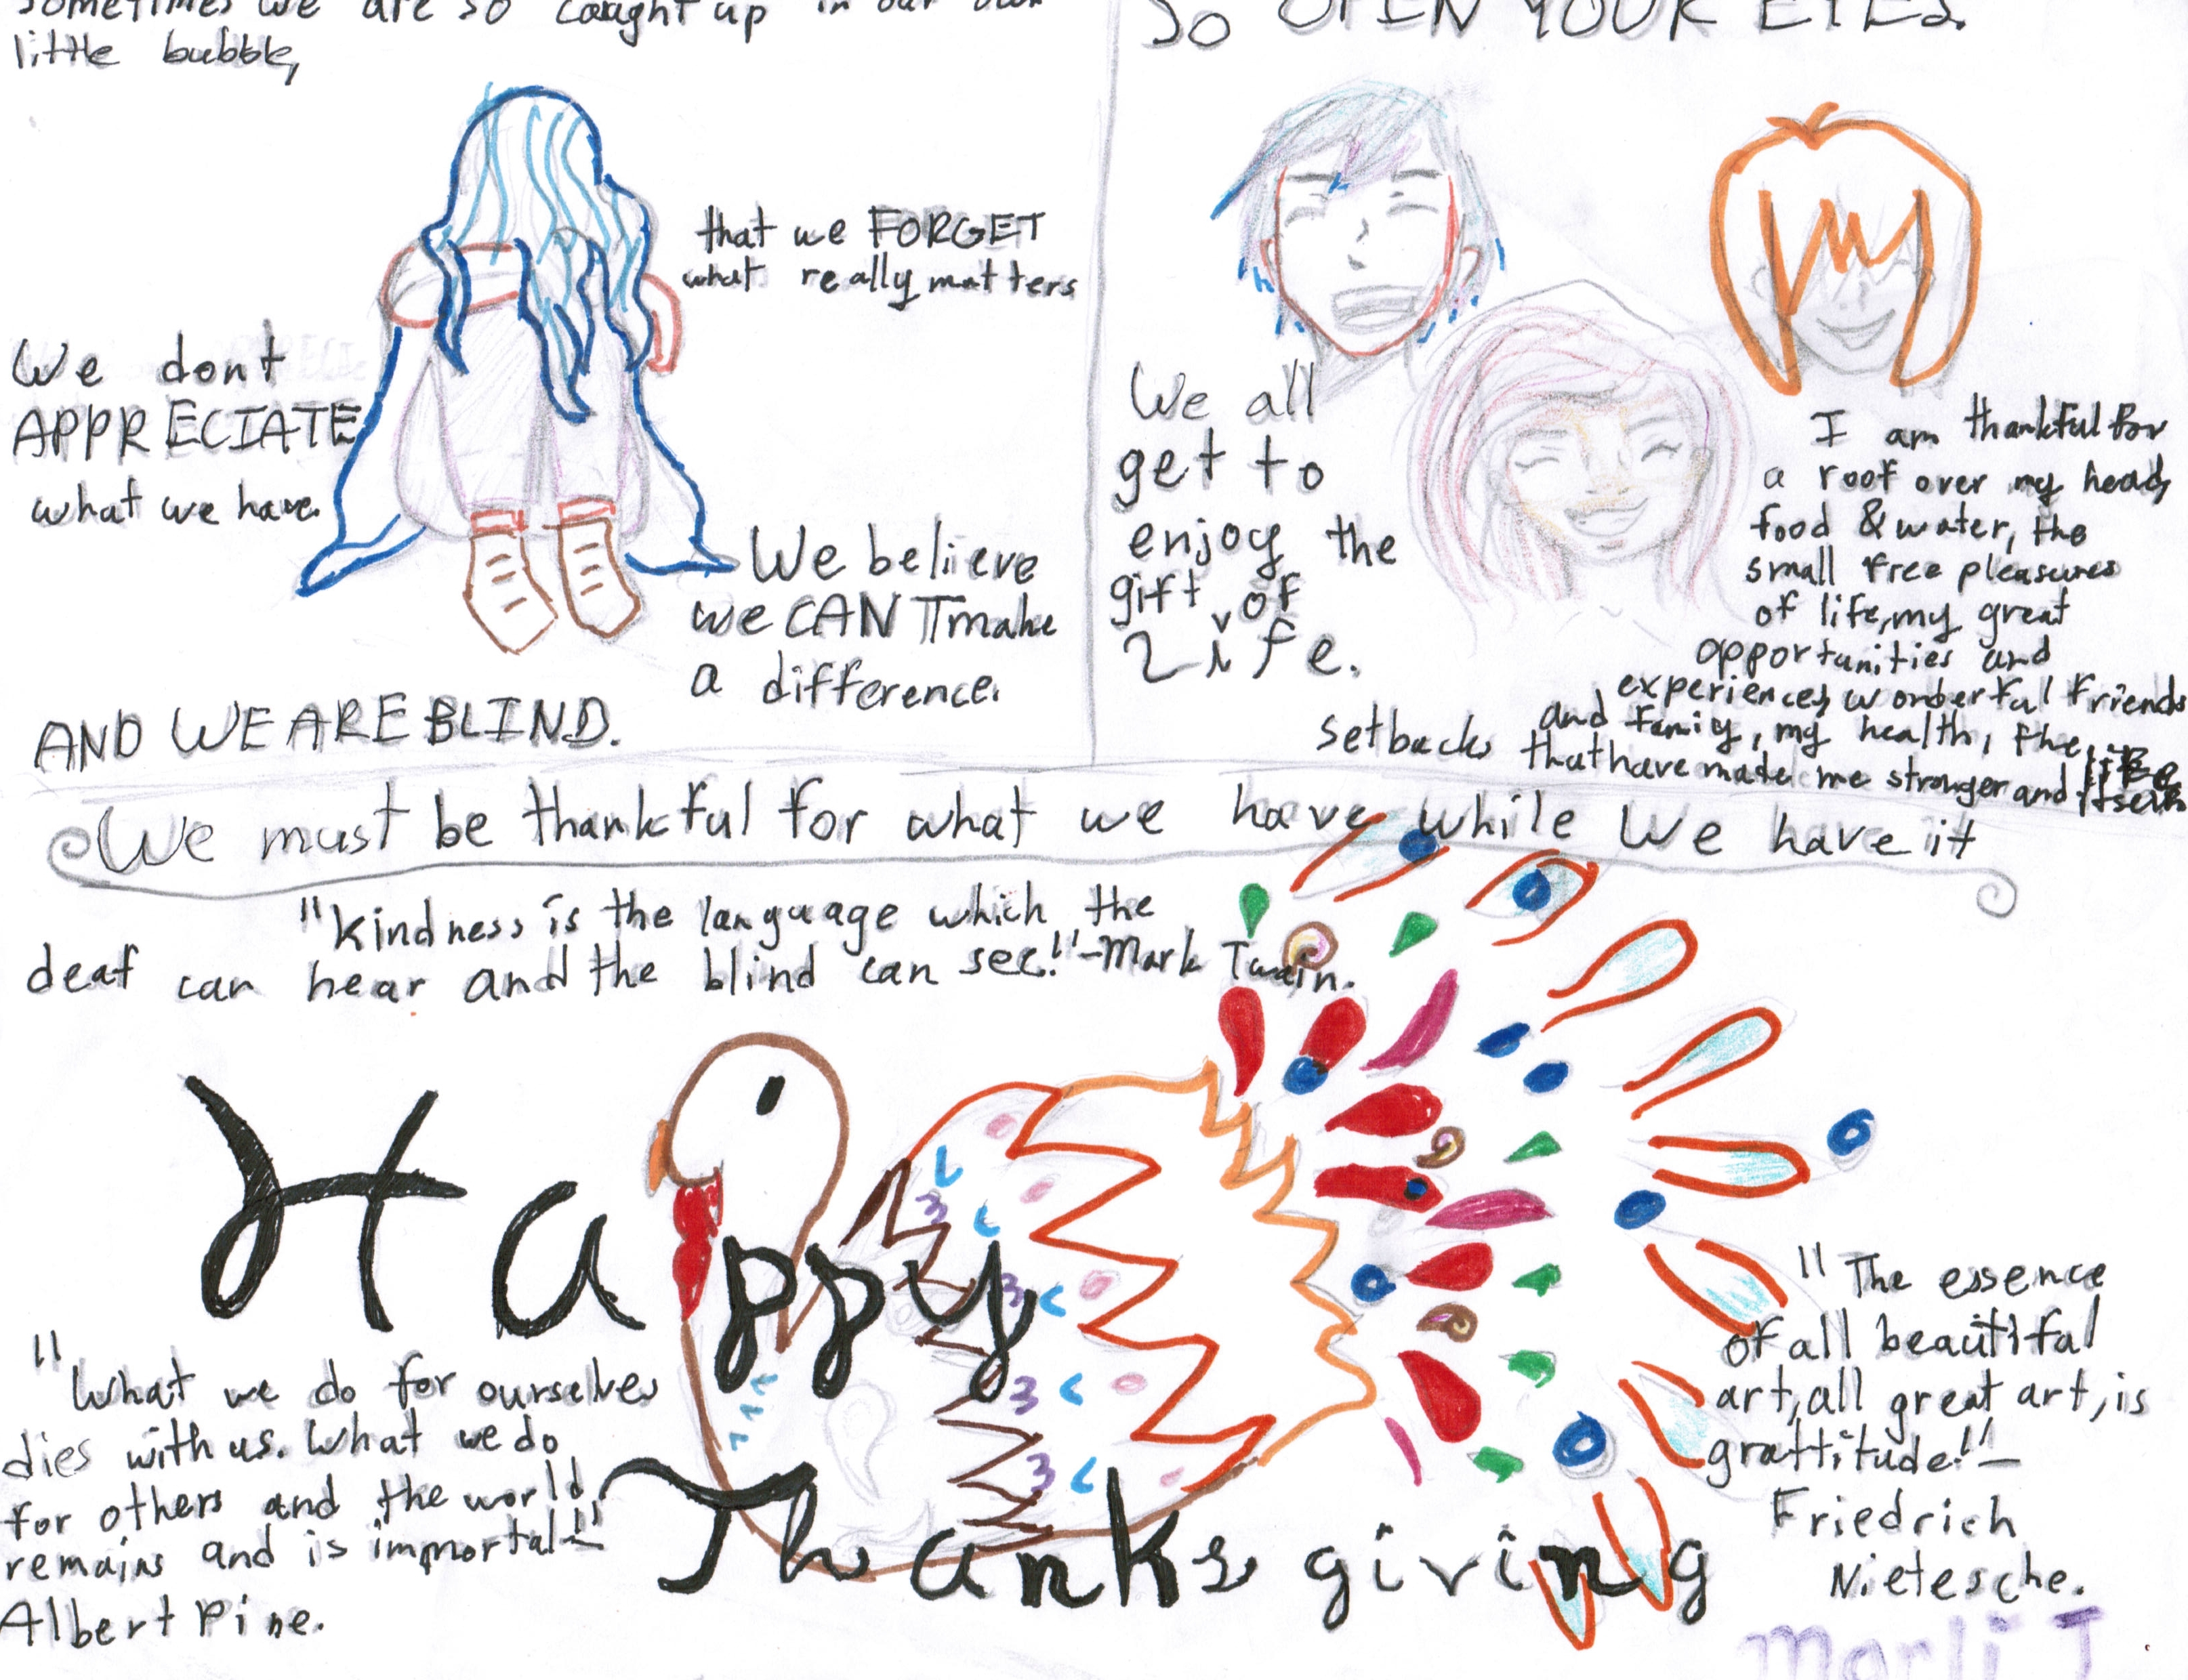 sometimes we are so caught up in our own
little bubble,
that we FORGET
what really matters
We dont
APPRECIATE
what we have.
We believe
we CAN'T make
a difference.
AND WE ARE BLIND.
SO OPEN YOUR EYES.
We all
get to
enjoy the
gift of
Life.
I am thankful for
a roof over my head,
food & water, the
small free pleasures
of life, my great
opportunities and
experiences, wonderful friends
and family, my health, the
setbacks that have made me stronger and life itself
We must be thankful for what we have while we have it
"Kindness is the language which the
deaf can hear and the blind can see." -Mark Twain.
Happy
Thanksgiving
"What we do for ourselves
dies with us. What we do
for others and the world
remains and is immortal" -
Albert Pine.
"The essence
of all beautiful
art, all great art, is
grattitude." -
Friedrich
Nietesche.
Marli T